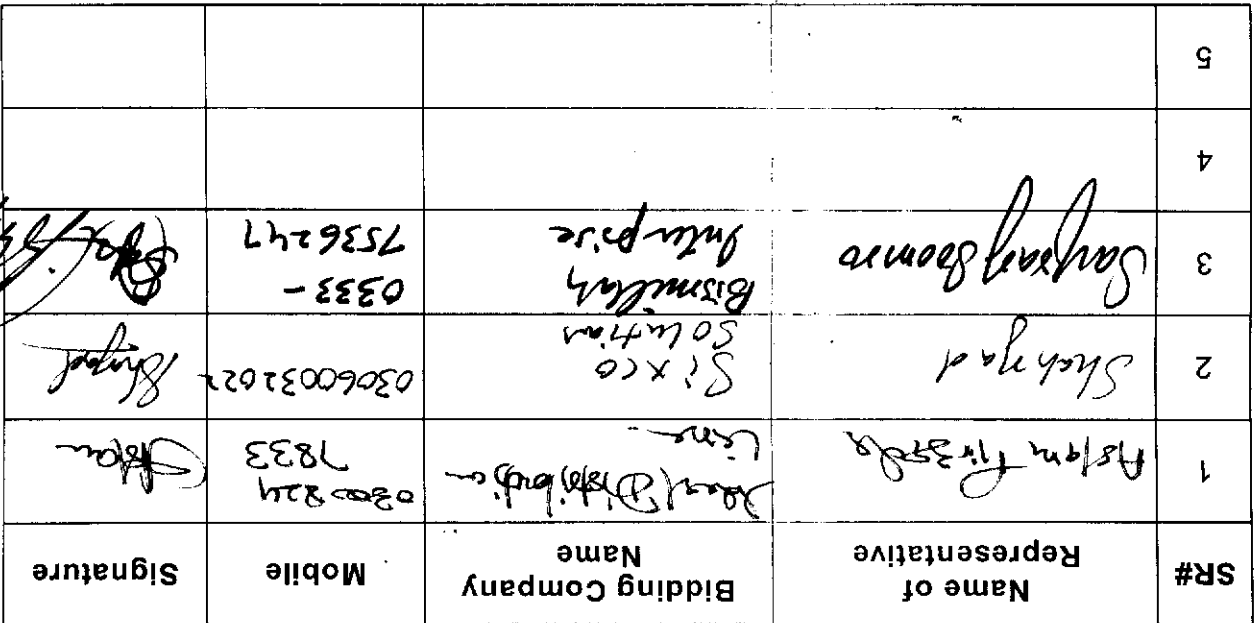 SR#
Name of
Representative
Bidding Company
Name
Mobile
Signature
1
Aslam Pirzada
Ideal Distribution
Line
0300 824
7833
Aslam
2
Shahzad
Sixco
Solutions
03060032022
3
Soomro
Bismillah
Interprise
0333-
7536247
4
5